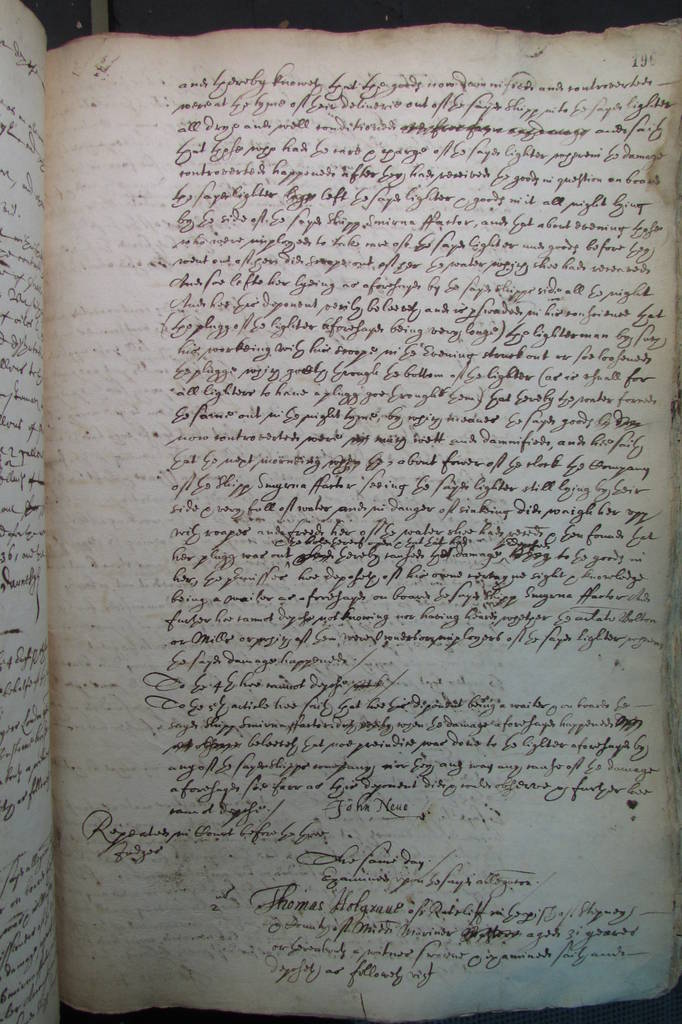 196
and thereby knoweth that the goods now damnified and controverted
were at the tyme of their deliverie out of the sayd shipp into the sayd lighter
all drye and well conditioned and saith
that those who had the care & charge of the sayd lighter wherein the damage
controverted happened after they had received the goods in question on board
the sayd lighter left the sayd lighter & goods in it all night lying
by the side of the sayd shipp Smirna ffactor, and that about evening those
who were imployed to take care of the sayd lighter and goods before they
went out of her did scoope out of her the water which shee had received
And soe left her lyeing as aforesayd by the sayd shipps side all the night
And hee this deponent verily beleeveth and is perswaded in his conscience that
(the plugg of the lighter aforesayd being very large) the lighterman by
his working with his scoope in the Evening struck out or soe loosened
the plugge which goeth through the bottom of the lighter (as is usuall for
all lighters to have a plugg goe through them) that thereby the water forced
the same out in the night tyme, by which meanes the sayd goods
now controverted were wett and damnified, and hee saith
that the next morning about fower of the clock the Company
of the shipp Smyrna ffactor seeing the sayd lighter still lying by their
side & very full of water and in danger of sinking did waigh her upp
with roapes and freed her of the water shee had & then found that
her plugg was out thereby caused the damage to the goods in
her, the premisses hee deposeth of his owne certayne sight & knowledge
being a waiter as aforesayd on board the sayd shipp Smyrna ffactor And
further hee cannot depose not knowing nor having heard whether the arlate
or Mills or which of them were owners or imployers of the sayd lighter
the sayd damage happened /
To the 4th hee cannot depose /
To the 5th article hee saith that hee this deponent being a waiter on board the
sayd shipp Smirna ffactor when the damage aforesayd happened
beleeveth that noe prejudice was done to the lighter aforesayd by
any of the sayd shipps company nor they any way any cause of the damage
aforesayd soe farr as this deponent did or could observe & further hee
cannot depose. /
John Neve
Repeated in Court before the three
Judges
The same day.
Examined upon the sayd allegation. /
2
Thomas Holgrave of Ratcliff in the parish of Stepney
& County of Middx Mariner aged 31 yeares
or thereabouts a witnes sworne & examined saith and
deposeth as followeth vizt